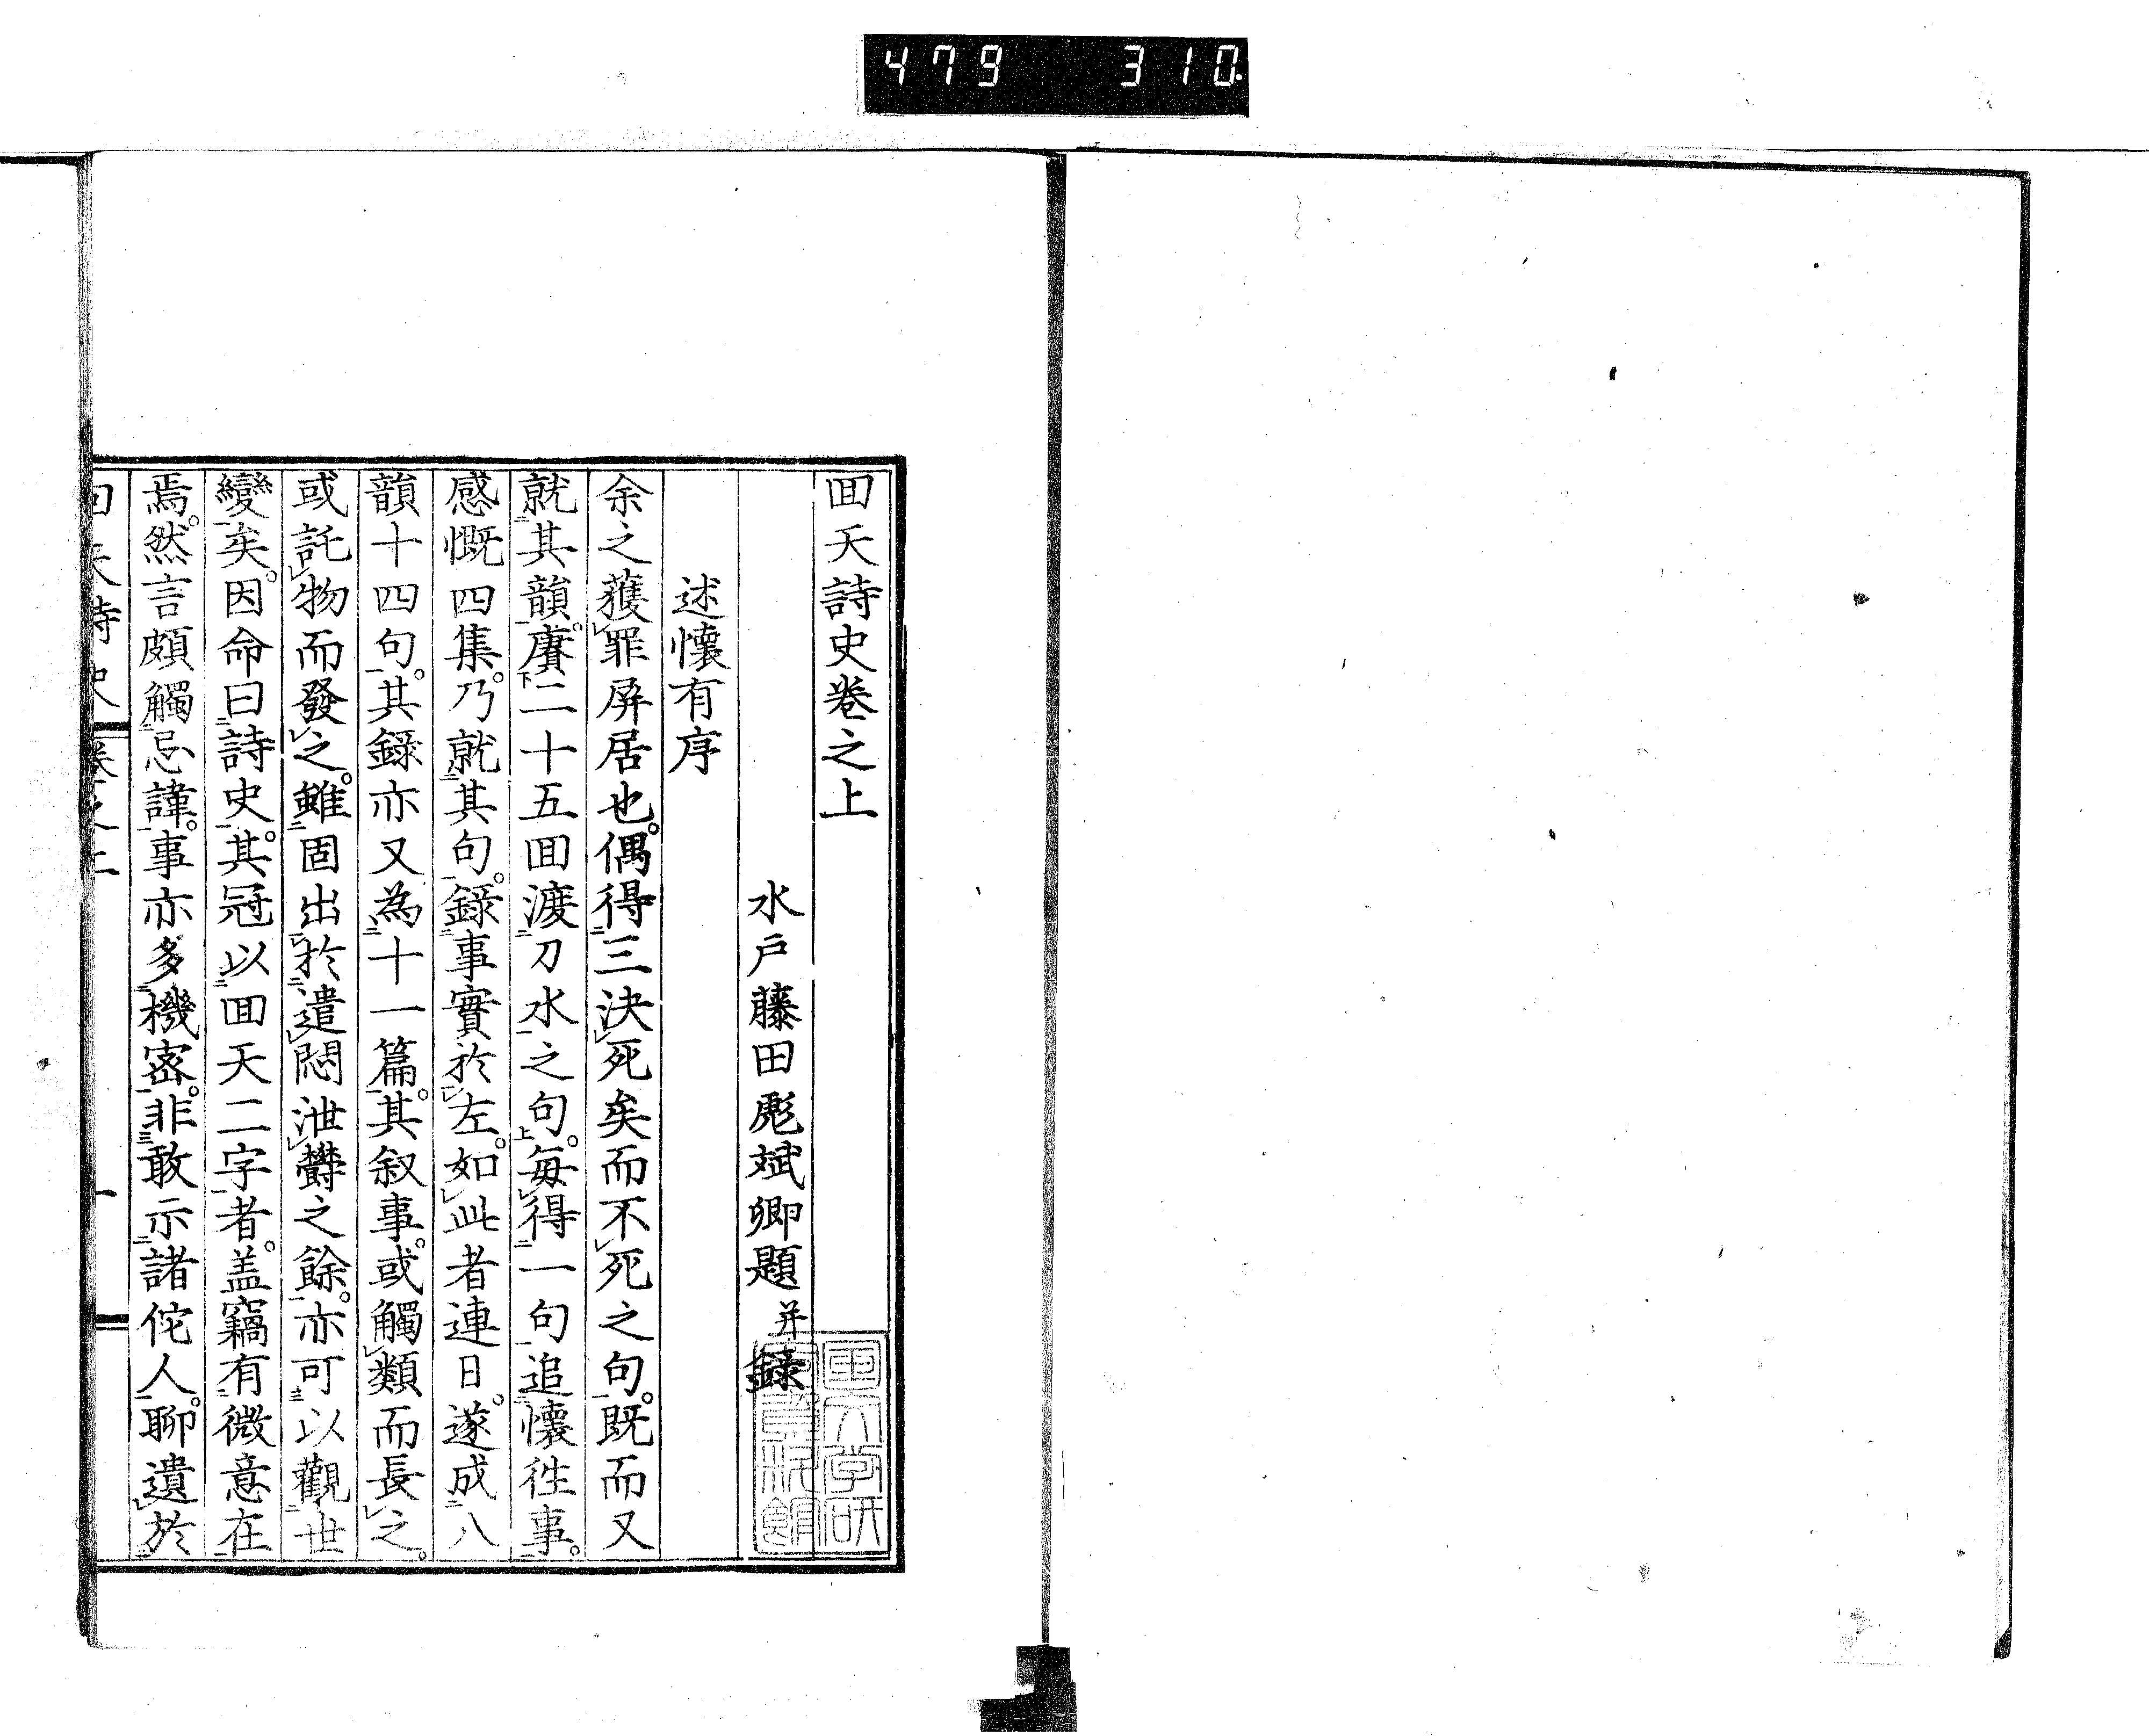 479 310
囬天詩史卷之上
水戸藤田彪斌卿題并錄
述懷有序
余之獲罪屏居也。偶得三決死矣而不死之句。既而又
就其韻。賡二十五囬渡刀水之句。每得一句追懷徃事。
感慨四集。乃就其句。錄事實於左。如此者連日。遂成八
韻十四句。其錄亦又為十一篇。其叙事。或觸類而長之。
或託物而發之。雖固出於遣悶泄欝之餘。亦可以觀世
變矣。因命曰詩史。其冠以囬天二字者。盖竊有微意在
焉。然言頗觸忌諱。事亦多機密。非敢示諸佗人。聊遺於